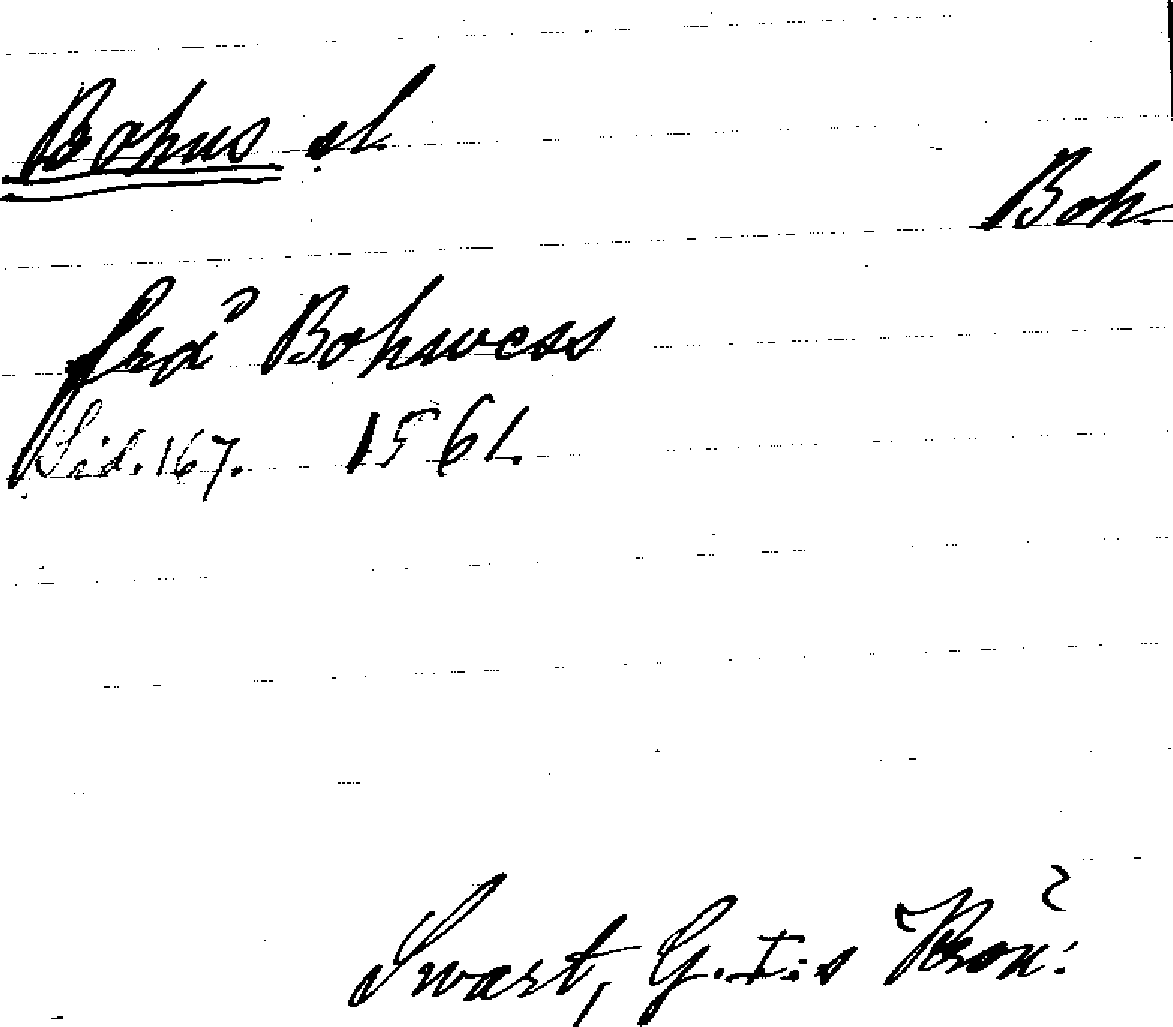 Bohus sl
Boh.
frå Bohwess
Sid. 167. 1561
Swart, G. I:s Krön: